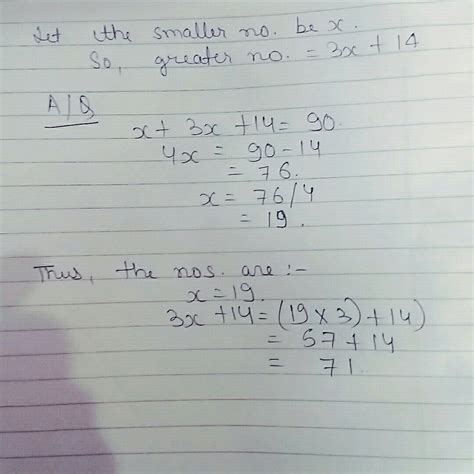 Let the smaller no. be x.
So, greater no. = 3x + 14
A/Q
x + 3x + 14 = 90.
4x = 90 - 14
= 76.
x = 76/4
= 19.
Thus, the nos. are :-
x = 19.
3x + 14 = (19 × 3) + 14)
= 57 + 14
= 71.